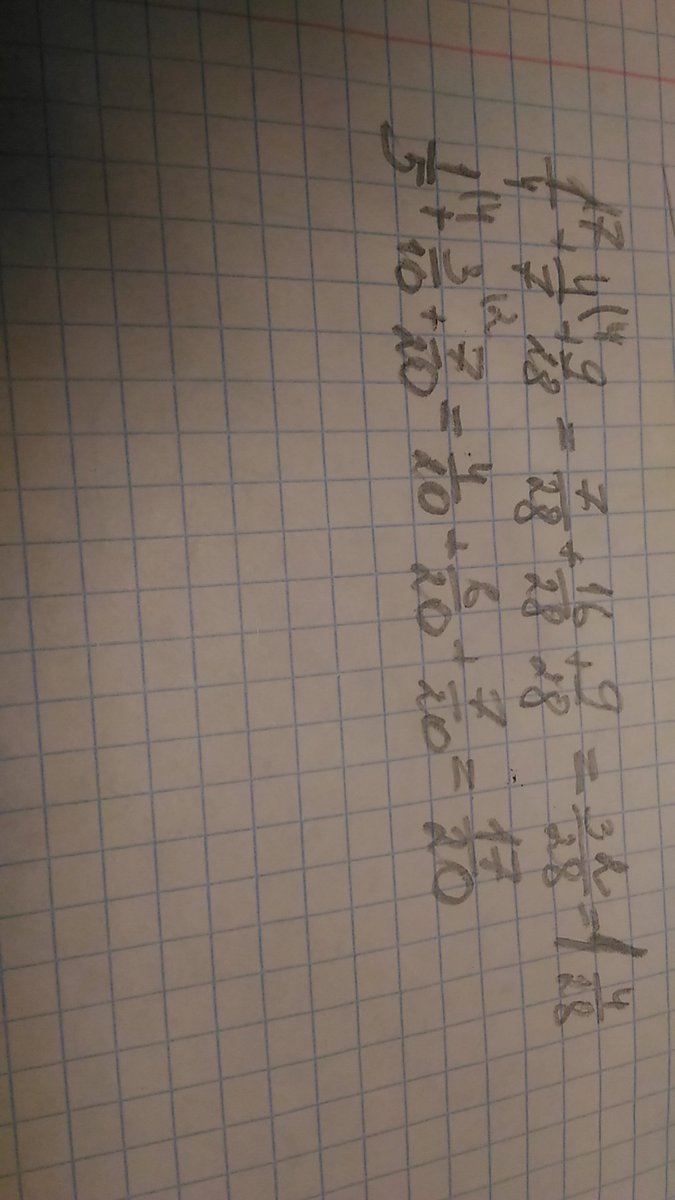 1/4 (7 + 4/7 (4 + 9/28 = 7/28 + 16/28 + 9/28 = 32/28 = 1 4/28
1/5 (4 + 3/10 (2 + 7/20 = 4/20 + 6/20 + 7/20 = 17/20